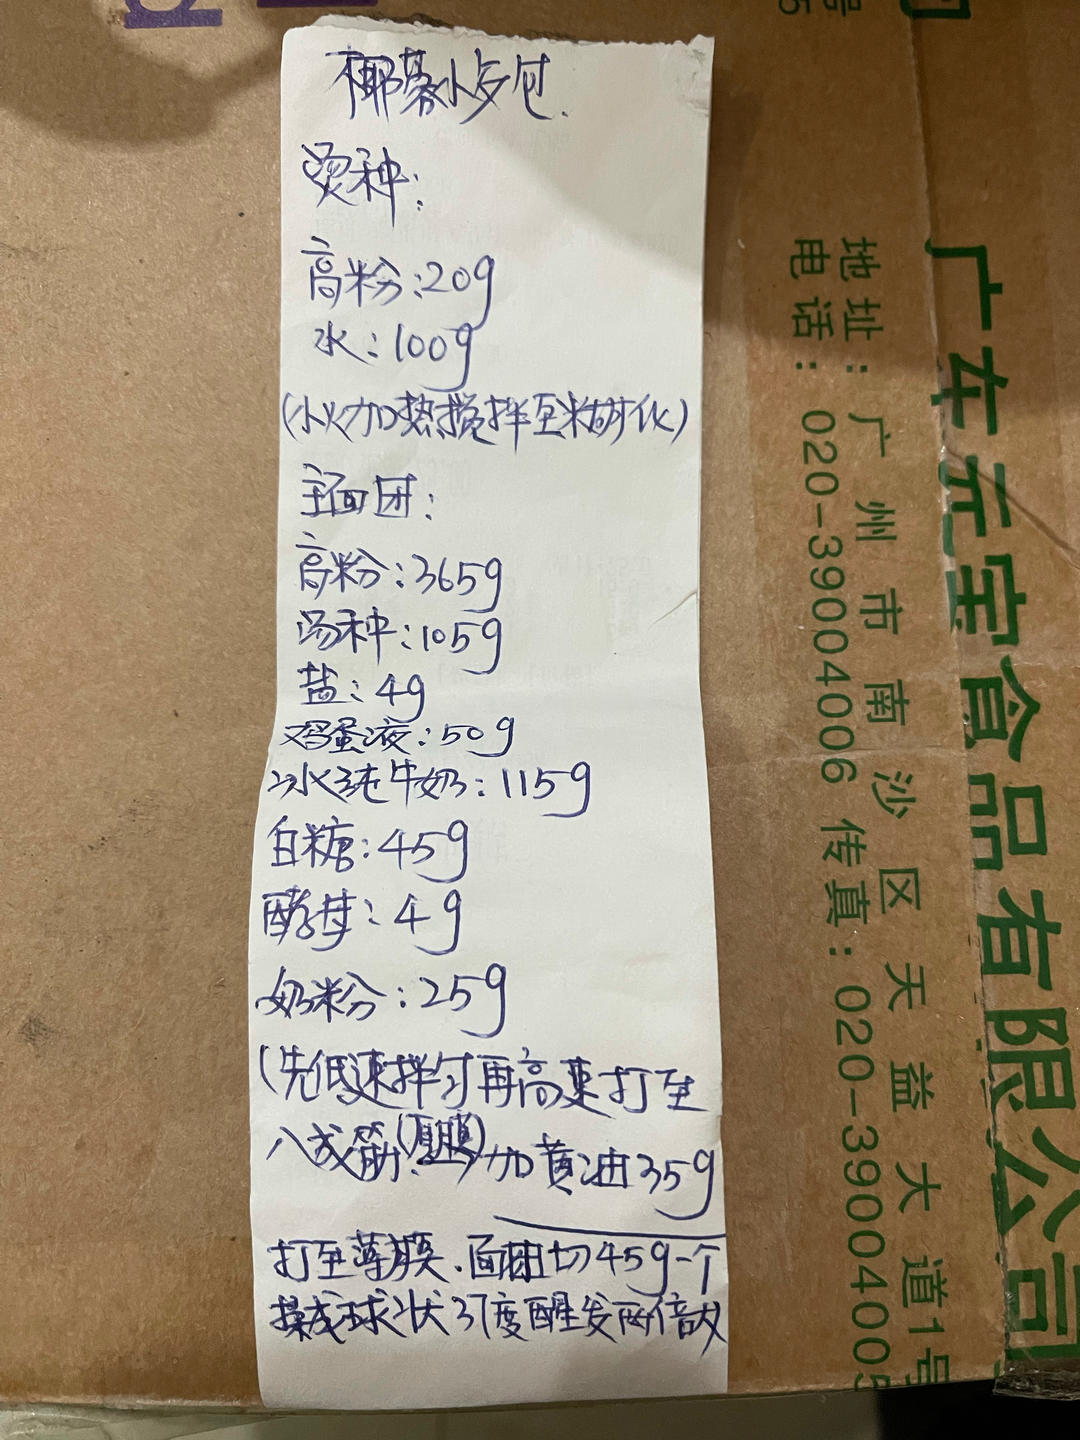 椰慕小歺包.
烫种:
高粉:20g
水:100g
(小火加热搅拌至米糊化)
主面团:
高粉:365g
汤种:105g
盐:4g
鸡蛋液:50g
冰纯牛奶:115g
白糖:45g
酵母:4g
奶粉:25g
(先低速拌匀再高速打至
八成筋(厚膜)加黄油35g
打至薄膜.面团切45g一个
搓成球状37度醒发两倍大
广东元宝食品有限公司
地址:广州市南沙区天益大道1号
电话:020-39004006 传真:020-39004005